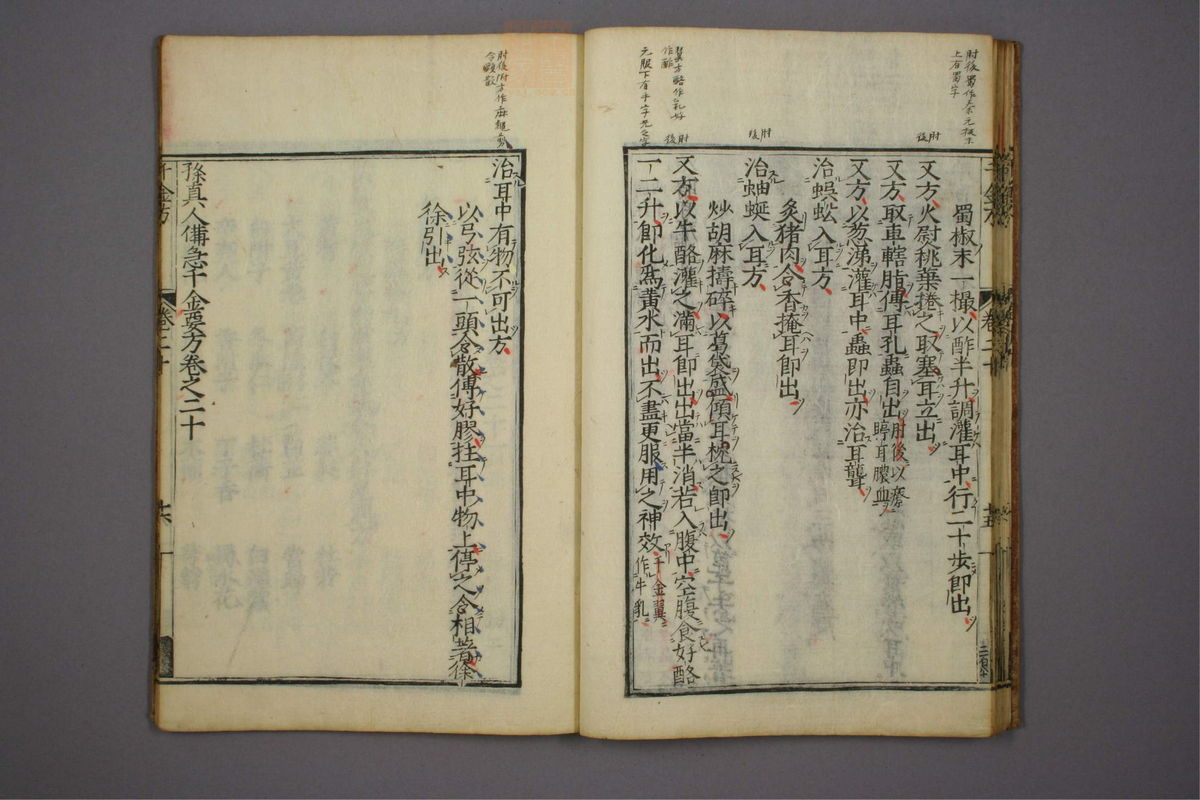 蜀椒末一撮以酢半升調灌耳中行二十步即出
又方火尉桃葉捲之取塞耳立出
又方取車轄脂傅耳孔蟲自出肘後以療聤耳膿血
又方以葱涕灌耳中蟲即出亦治耳聾
治蜈蚣入耳方
炙猪肉令香掩耳即出
治蚰蜒入耳方
炒胡麻擣碎以葛袋盛傾耳枕之即出
又方以牛酪灌之滿耳即出出當半消若入腹中空腹食好酪
一二升即化為黃水而出不盡更服用之神效千金翼作牛乳
治耳中有物不可出方
以弓弦從一頭令散傅好膠拄耳中物上停之令相著徐
徐引出
孫真人備急千金要方卷之二十
千金方 卷二十
肘後
肘後
肘後